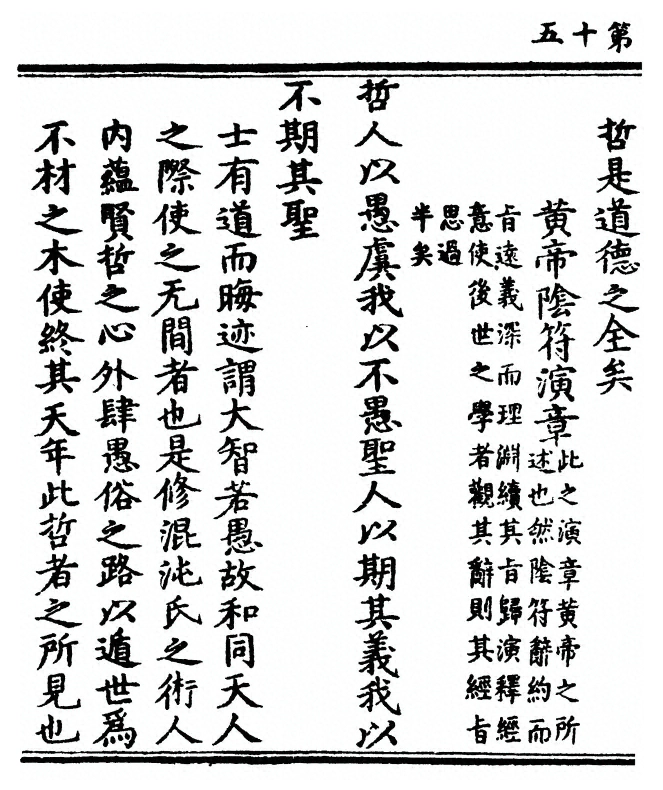 第十五
哲是道德之全矣
黄帝陰符演章
此之演章黄帝之所
述也然陰符辭約而
旨遠義深而理淵續其旨歸演釋經
意使後世之學者觀其辭則其經旨
思過
半矣
哲人以愚虞我以不愚聖人以期其義我以
不期其聖
士有道而晦迹謂大智若愚故和同天人
之際使之无間者也是修混沌氏之術人
内蘊賢哲之心外肆愚俗之路以遁世爲
不材之木使終其天年此哲者之所見也